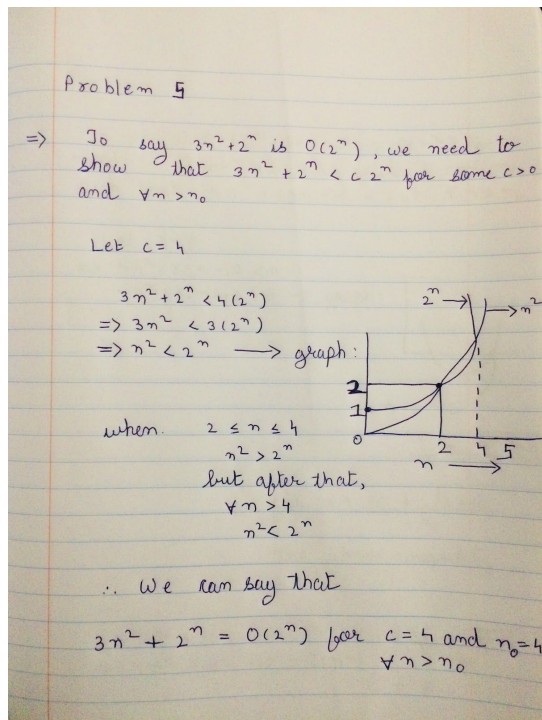 Problem 5
=> To say 3n²+2ⁿ is O(2ⁿ), we need to
show that 3n² + 2ⁿ < c 2ⁿ for some c>0
and ∀n >n₀
Let c = 4
3n² + 2ⁿ < 4(2ⁿ)
=> 3n² < 3(2ⁿ)
=> n² < 2ⁿ ⟶ graph:
2ⁿ → → n²
2
1
0
2 4 5
n ⟶
when 2 ≤ n ≤ 4
n² > 2ⁿ
but after that,
∀n > 4
n² < 2ⁿ
∴ We can say that
3n² + 2ⁿ = O(2ⁿ) for c = 4 and n₀=4
∀n > n₀